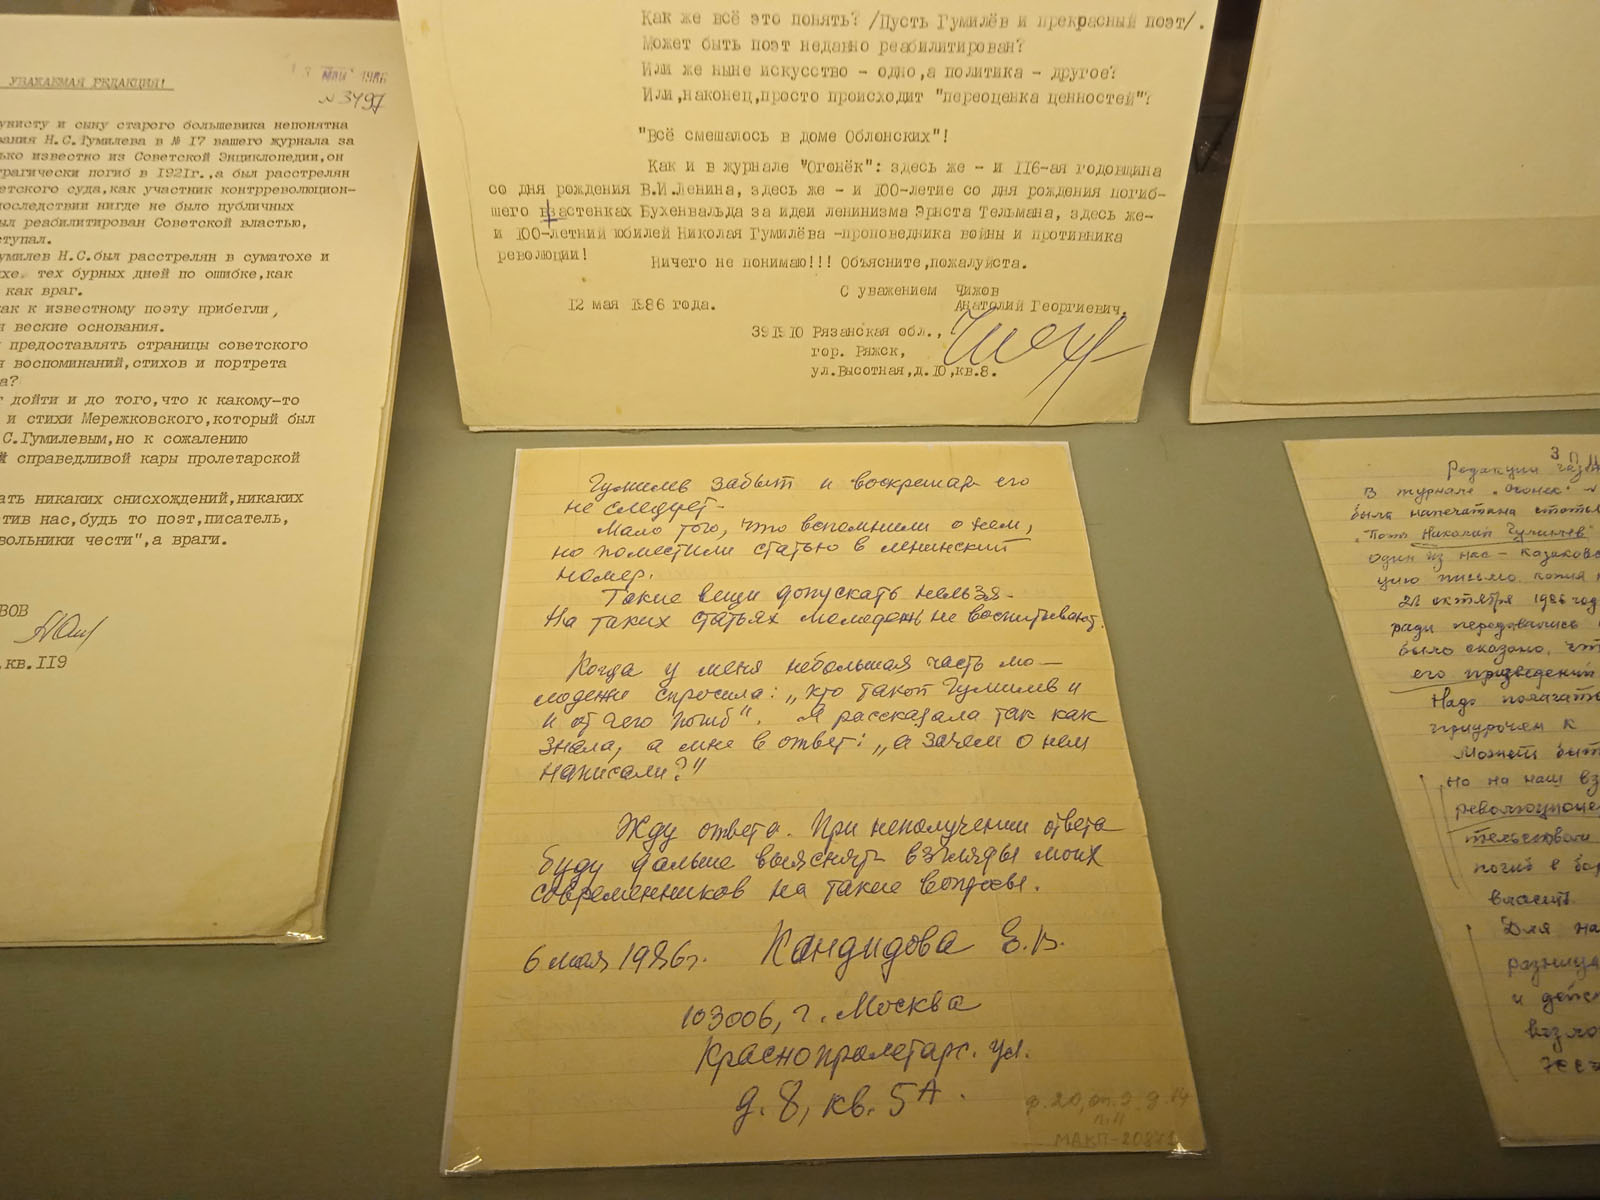 УВАЖАЕМАЯ РЕДАКЦИЯ!
МАЙ 1986
№ 3497
унисту и сыну старого большевика непонятна
вания Н.С.Гумилева в № 17 вашего журнала за
ько известно из Советской Энциклопедии,он
трагически погиб в 1921г.,а был расстрелян
етского суда,как участник контрреволюцион-
последствии нигде не было публичных
ыл реабилитирован Советской властью,
ступал.
умилев Н.С.был расстрелян в суматохе и
хе тех бурных дней по ошибке,как
как враг.
ак к известному поэту прибегли,
и веские основания.
предоставлять страницы советского
я воспоминаний,стихов и портрета
а?
т дойти и до того,что к какому-то
и стихи Мережковского,который был
С.Гумилевым,но к сожалению
й справедливой кары пролетарской
ать никаких снисхождений,никаких
тив нас,будь то поэт,писатель,
вольники чести",а враги.
ВОВ
,кв.119
Как же всё это понять? /Пусть Гумилёв и прекрасный поэт/.
Может быть поэт недавно реабилитирован?
Или же ныне искусство - одно,а политика - другое?
Или,наконец,просто происходит "переоценка ценностей"?
"Всё смешалось в доме Облонских"!
Как и в журнале "Огонёк": здесь же - и 116-ая годовщина
со дня рождения В.И.Ленина, здесь же - и 100-летие со дня рождения погиб-
шего в застенках Бухенвальда за идеи ленинизма Эрнста Тельмана, здесь же-
и 100-летний юбилей Николая Гумилёва -проповедника войны и противника
революции!
Ничего не понимаю!!! Объясните,пожалуйста.
С уважением Чижов
Анатолий Георгиевич.
12 мая 1986 года.
391910 Рязанская обл.,
гор. Ряжск,
ул.Высотная,д.10,кв.8.
Гумилев забыт и воскрешать его
не следует.
Мало того, что вспомнили о нем,
но поместили статью в ленинский
номер.
Такие вещи допускать нельзя.
На таких статьях молодежь не воспитывают.
Когда у меня небольшая часть мо-
лодежи спросила: „Кто такой Гумилев и
и от чего погиб". Я рассказала так как
знала, а мне в ответ: „а зачем о нем
написали?"
Жду ответа. При неполучении ответа
буду дальше выяснять взгляды моих
современников на такие вопросы.
6 мая 1986г. Кандидова Е.В.
103006, г. Москва
Краснопролетарс. ул.
д. 8, кв. 5А.
ф. 20, оп. д.
МАКП-2087
Редакции
В журнале „Огонек"
была напечатана
Николай Гумилев"
один из нас - Казаков
цию письмо, копия
21 октября 1986 год
ради передавались
было сказано, что
его произведений
Надо полагать
приурочен к
Может быть
но на наш вз
революционе
тельствовали
погиб в бо
власти.
Для на
разница
и дейс